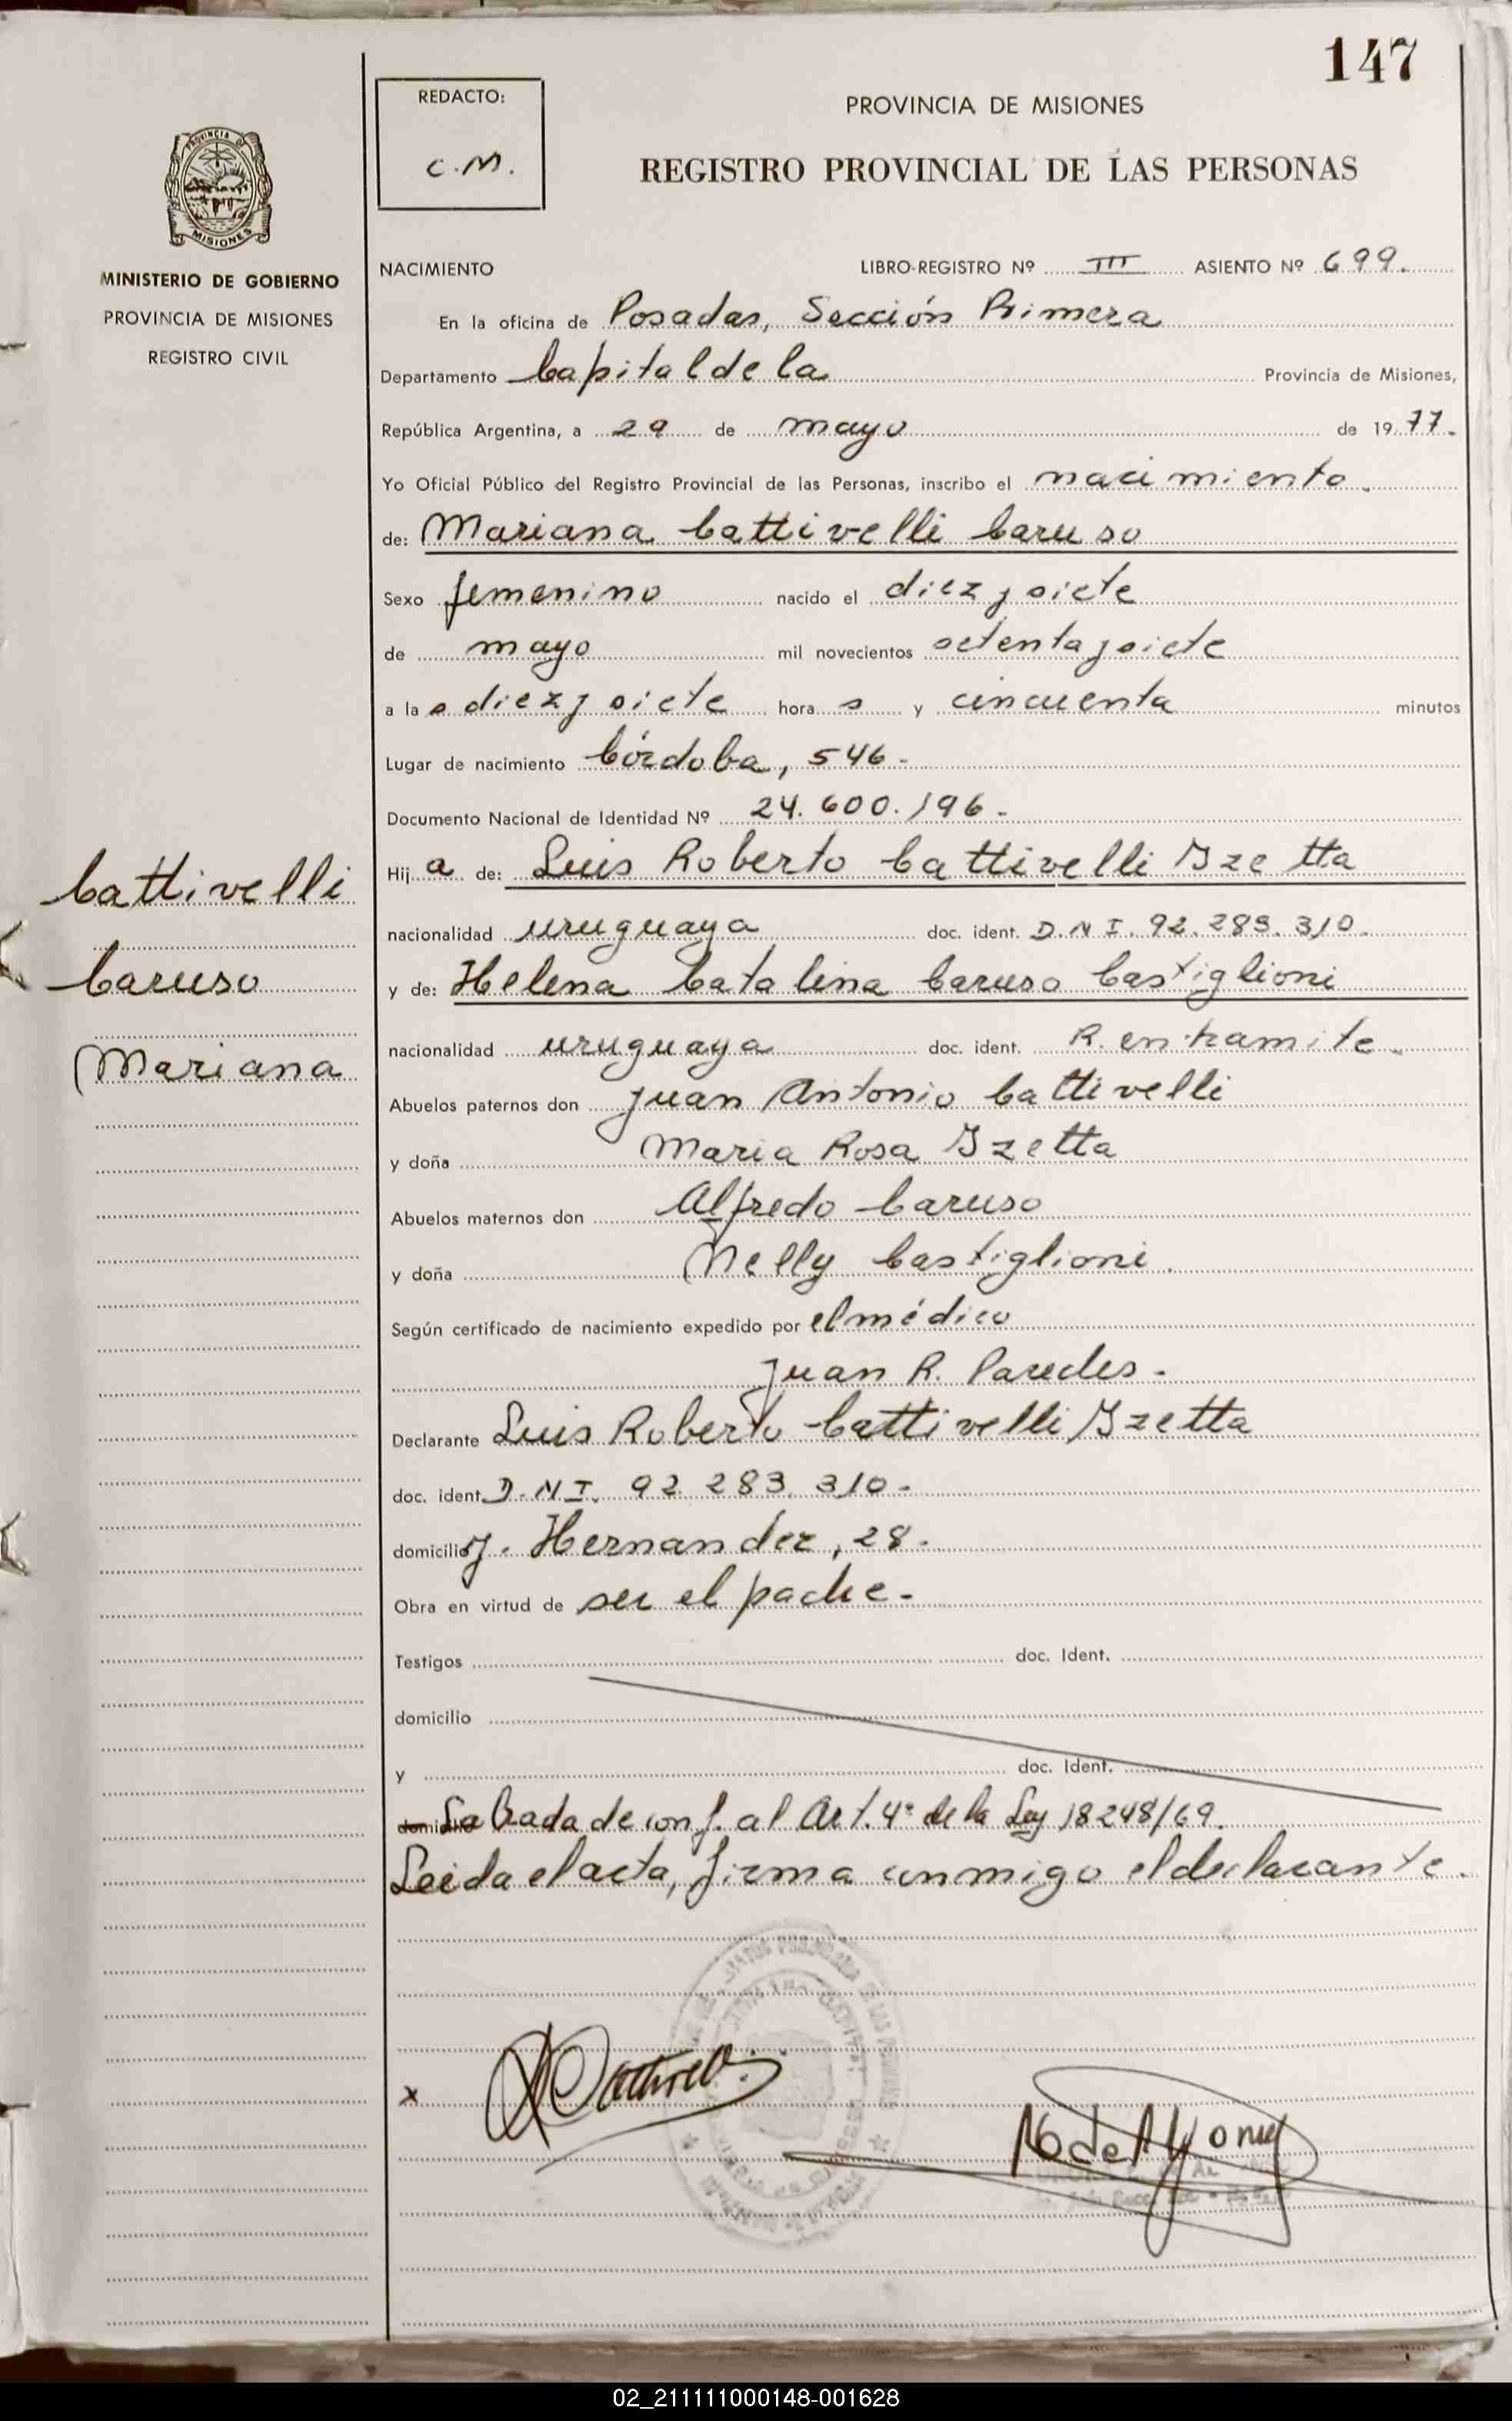 147
REDACTO:
C.M.
PROVINCIA DE MISIONES
REGISTRO PROVINCIAL DE LAS PERSONAS
PROVINCIA DE
MISIONES
MINISTERIO DE GOBIERNO
PROVINCIA DE MISIONES
REGISTRO CIVIL
NACIMIENTO LIBRO-REGISTRO Nº III ASIENTO Nº 699.
En la oficina de Posadas, Sección Primera
Departamento Capital de la Provincia de Misiones,
República Argentina, a 29 de mayo de 1977.
Yo Oficial Público del Registro Provincial de las Personas, inscribo el nacimiento.
de: Mariana Cattivelli Caruso
Sexo femenino nacido el diez y siete
de mayo mil novecientos setenta y siete
a las diez y siete horas y cincuenta minutos
Lugar de nacimiento Córdoba, 546.-
Documento Nacional de Identidad Nº 24.600.196.-
Hija de: Luis Roberto Cattivelli Izetta
nacionalidad uruguaya doc. ident. D.N.I. 92.283.310.
y de: Helena Catalina Caruso Castiglioni
nacionalidad uruguaya doc. ident. R. en tramite.-
Abuelos paternos don Juan Antonio Cattivelli
y doña Maria Rosa Izetta
Abuelos maternos don Alfredo Caruso
y doña Nelly Castiglioni.
Según certificado de nacimiento expedido por el médico
Juan R. Paredes.-
Declarante Luis Roberto Cattivelli Izetta
doc. ident. D.N.I. 92.283.310.-
domicilio J. Hernandez, 28.-
Obra en virtud de ser el padre.-
Testigos doc. Ident.
domicilio
y doc. Ident.
de conf. al Art. 4º de la Ley 18248/69.
Leida el acta, firma conmigo el declarante.
x
Cattivelli
Caruso
Mariana
02_211111000148-001628